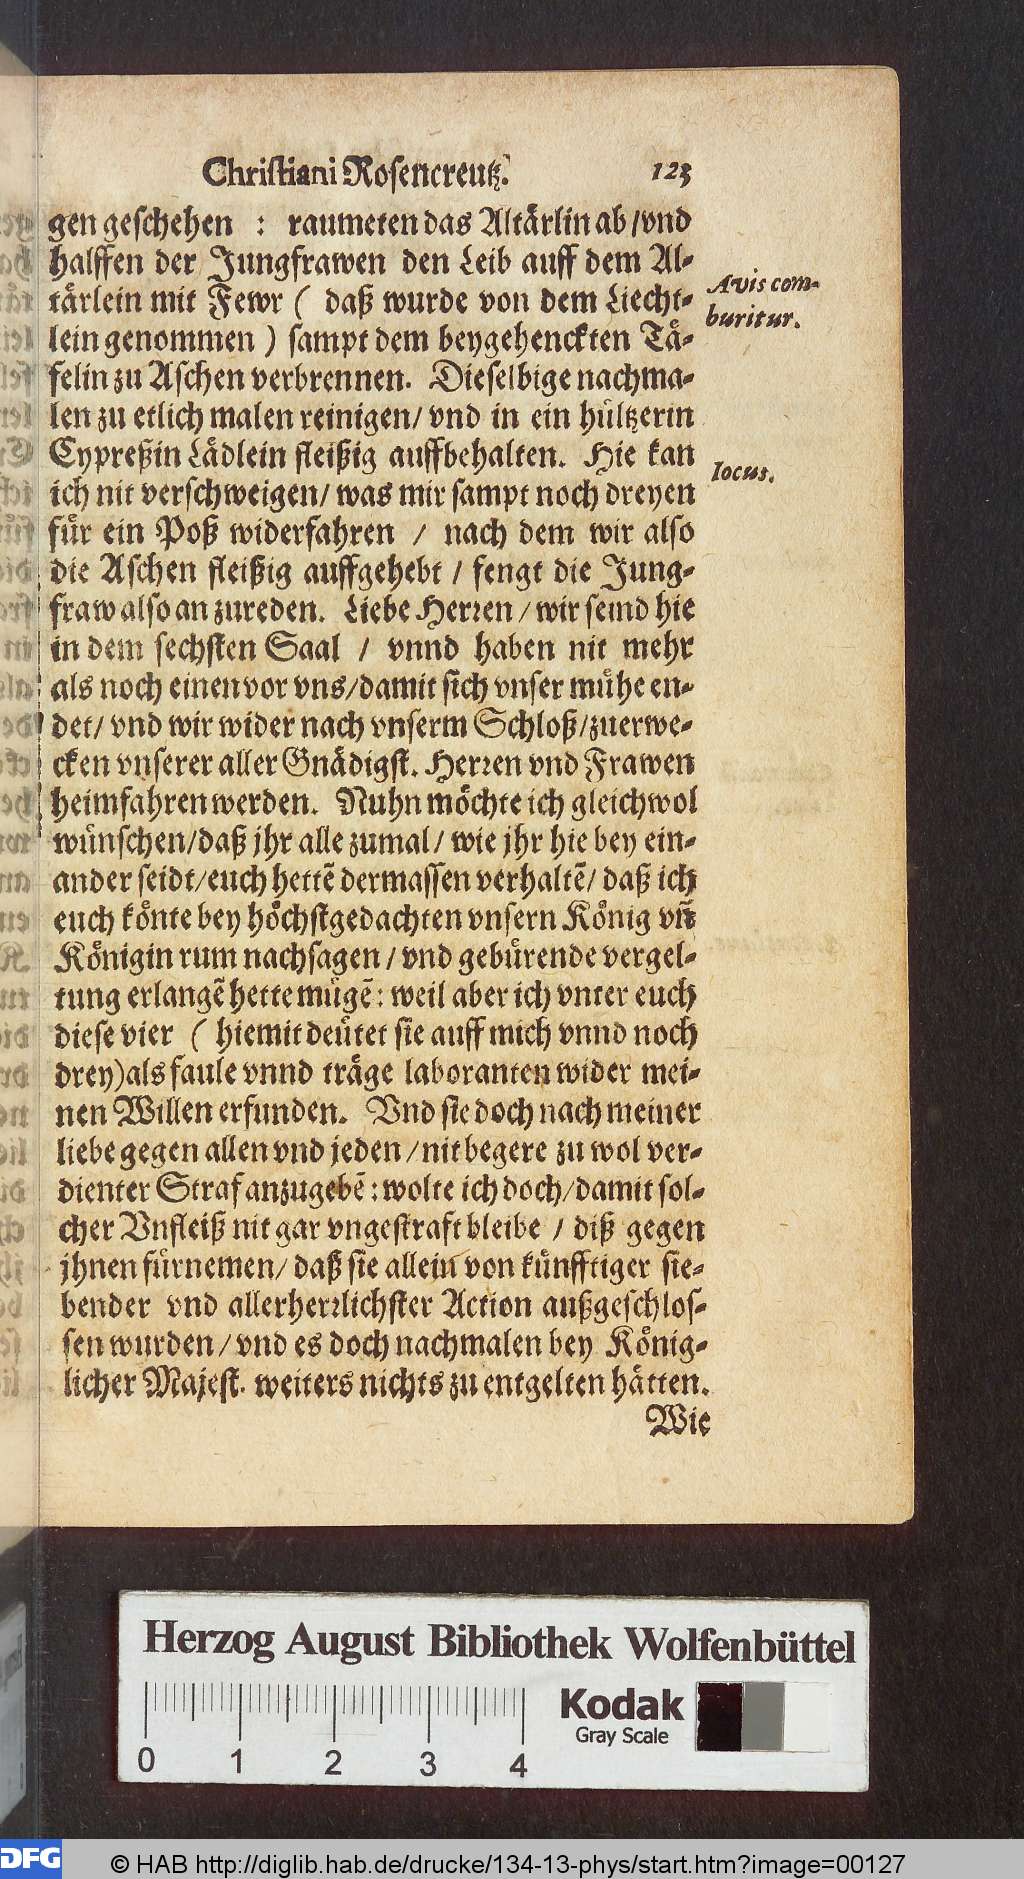 Christiani Rosencreutz. 123
gen geschehen : raumeten das Altärlin ab / vnd
halffen der Jungfrawen den Leib auff dem Al-
tärlein mit Fewr ( daß wurde von dem Liecht-
lein genommen ) sampt dem beygehenckten Tä-
felin zu Aschen verbrennen. Dieselbige nachma-
len zu etlich malen reinigen / vnd in ein hültzerin
Cypreßin Lädlein fleißig auffbehalten. Hie kan
ich nit verschweigen / was mir sampt noch dreyen
für ein Poß widerfahren / nach dem wir also
die Aschen fleißig auffgehebt / fengt die Jung-
fraw also an zureden. Liebe Herren / wir seind hie
in dem sechsten Saal / vnnd haben nit mehr
als noch einen vor vns / damit sich vnser mühe en-
det / vnd wir wider nach vnserm Schloß / zuerwe-
cken vnserer aller Gnädigst. Herren vnd Frawen
heimfahren werden. Nuhn möchte ich gleichwol
wünschen / daß jhr alle zumal / wie jhr hie bey ein-
ander seidt / euch hettẽ dermassen verhaltẽ / daß ich
euch könte bey höchstgedachten vnsern König vñ
Königin rum nachsagen / vnd gebürende vergel-
tung erlangẽ hette mügẽ : weil aber ich vnter euch
diese vier ( hiemit deütet sie auff mich vnnd noch
drey) als faule vnnd träge laboranten wider mei-
nen Willen erfunden. Vnd sie doch nach meiner
liebe gegen allen vnd jeden / nit begere zu wol ver-
dienter Straf anzugebẽ : wolte ich doch / damit sol-
cher Vnfleiß nit gar vngestraft bleibe / diß gegen
jhnen fürnemen / daß sie allein von künfftiger sie-
bender vnd allerherrlichster Action außgeschlos-
sen wurden / vnd es doch nachmalen bey König-
licher Majest. weiters nichts zu entgelten hätten.
Wie
Avis com-
buritur.
locus.
Herzog August Bibliothek Wolfenbüttel
Kodak
Gray Scale
0 1 2 3 4
DFG
© HAB http://diglib.hab.de/drucke/134-13-phys/start.htm?image=00127